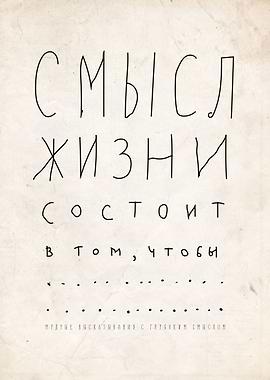 СМЫСЛ
ЖИЗНИ
СОСТОИТ
В ТОМ, ЧТОБЫ
МУДРЫЕ ВЫСКАЗЫВАНИЯ С ГЛУБОКИМ СМЫСЛОМ